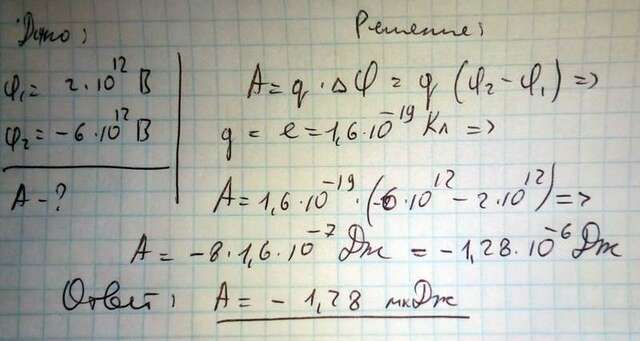 Дано:
Решение:
φ₁ = 2·10¹² В
φ₂ = -6·10¹² В
A - ?
A = q · Δφ = q (φ₂ - φ₁) =>
q = e = 1,6·10⁻¹⁹ Кл =>
A = 1,6·10⁻¹⁹·(-6·10¹² - 2·10¹²) =>
A = -8·1,6·10⁻⁷ Дж = -1,28·10⁻⁶ Дж
Ответ: A = - 1,28 мкДж